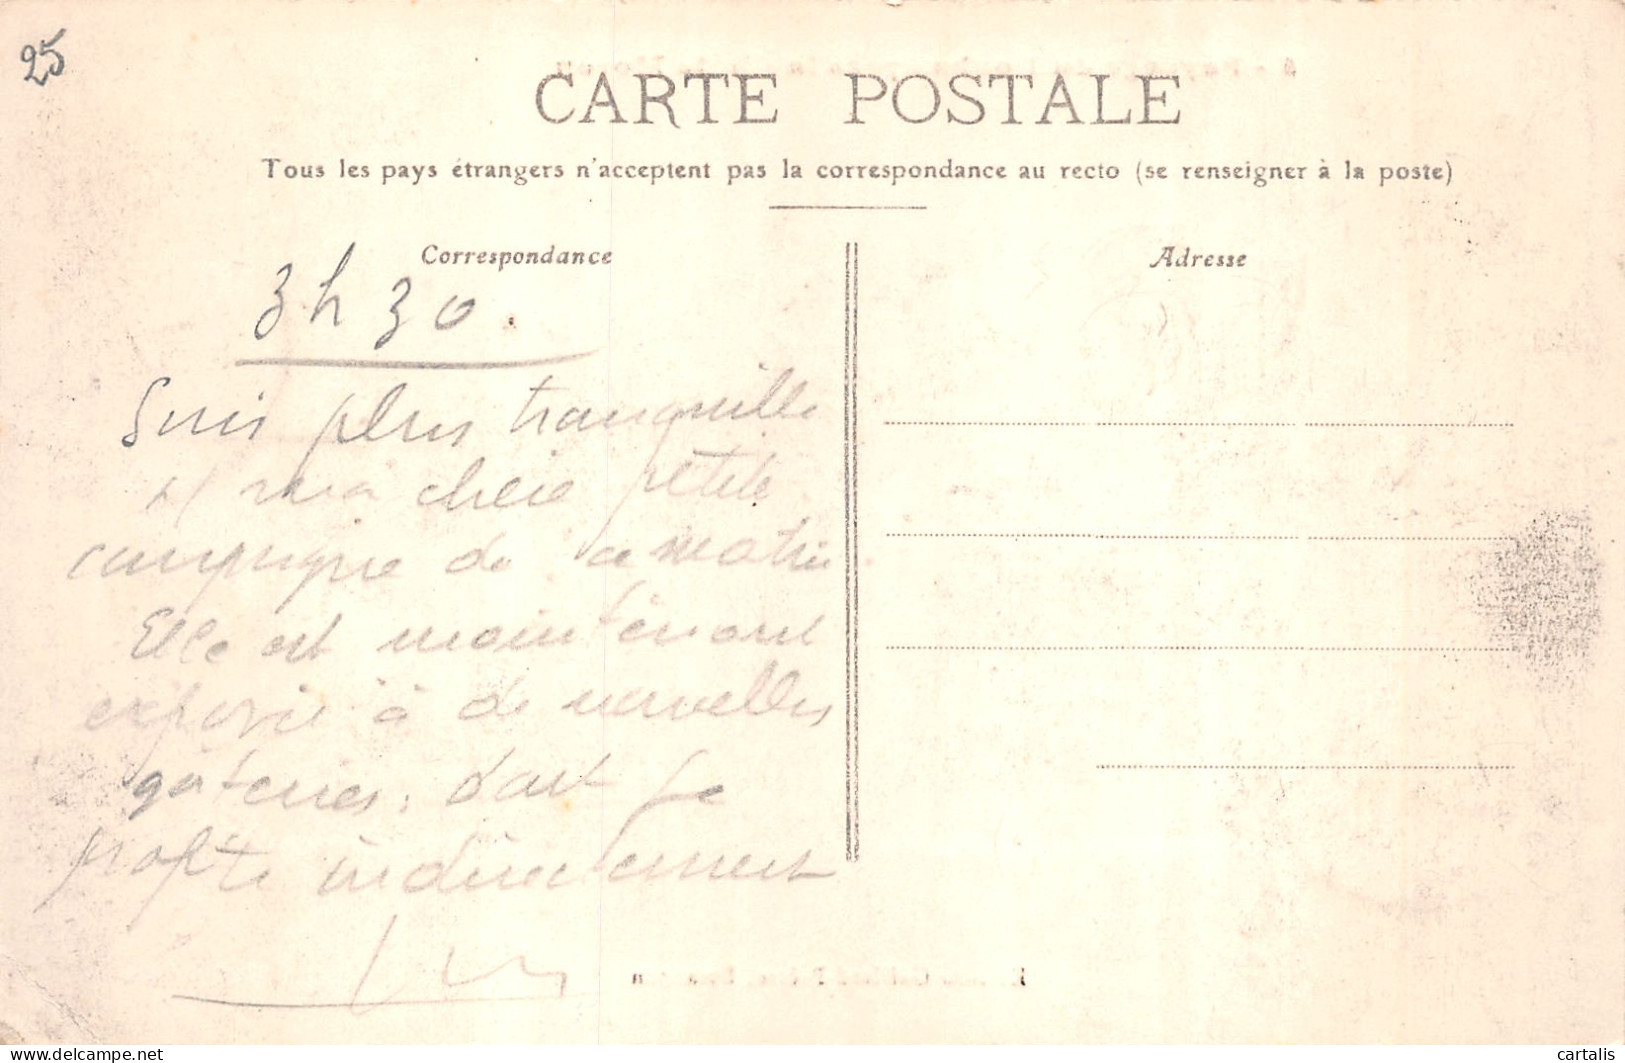 25
CARTE POSTALE
Tous les pays étrangers n'acceptent pas la correspondance au recto (se renseigner à la poste)
Correspondance
Adresse
3h30.
Suis plus tranquille
ma chère petite
compagne de ce matin
Elle est maintenant
à de nouvelles
gateries, dont je
profite indirectement
www.delcampe.net
cartalis